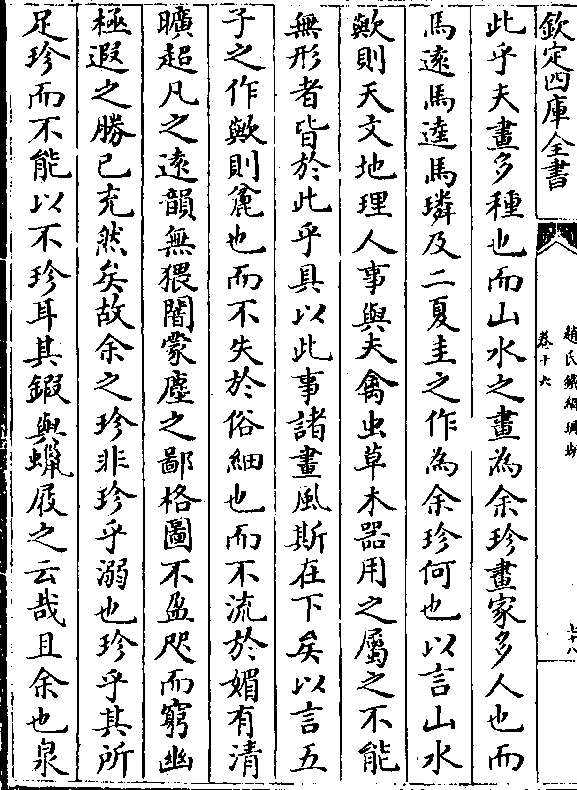 欽定四庫全書
趙氏鐵網珊瑚
卷十六
七十八
此乎夫畫多種也而山水之畫為余珍畫家多人也而
馬遠馬逵馬璘及二夏圭之作為余珍何也以言山水
歟則天文地理人事與夫禽虫草木器用之屬之不能
無形者皆於此乎具以此事諸畫風斯在下矣以言五
子之作歟則麄也而不失於俗細也而不流於媚有清
曠超凡之遠韻無猥闇蒙塵之鄙格圖不盈咫而窮幽
極遐之勝已充然矣故余之珍非珍乎溺也珍乎其所
足珍而不能以不珍耳其鍜與蠟屐之云哉且余也泉